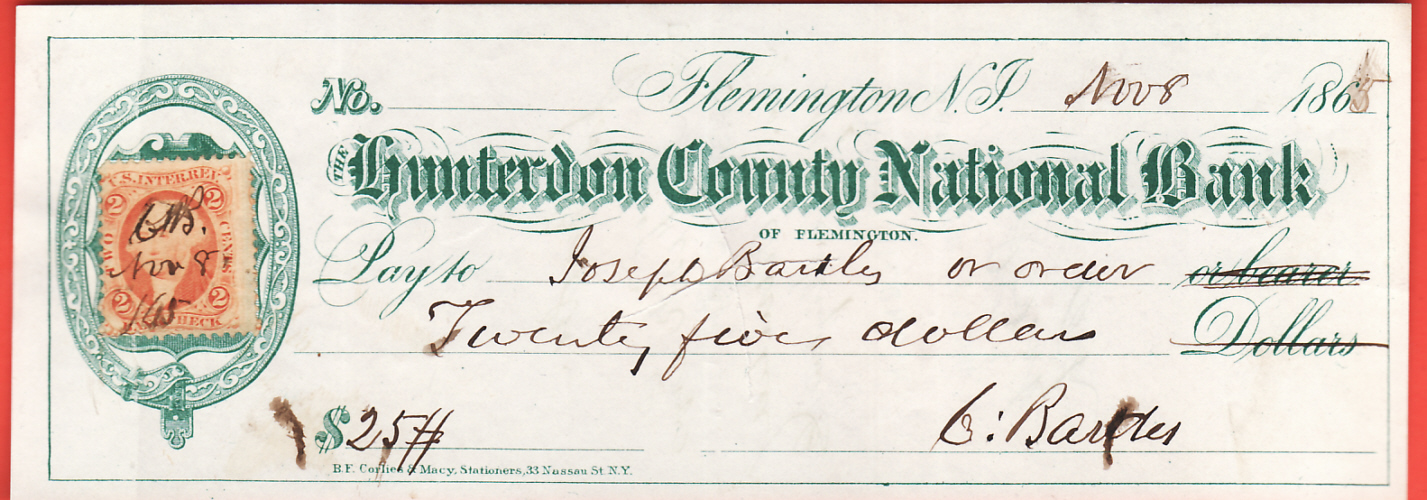 No. Flemington N.J. Nov 8 1865
THE Hunterdon County National Bank
OF FLEMINGTON.
Pay to Joseph Bartles or order or bearer
Twenty five dollars Dollars
$25#
C. Bartles
B.F. Corlies & Macy, Stationers, 33 Nassau St. N.Y.
U.S. INTER. REV.
2 2
TWO CENTS
C.B.
Nov 8
/65
2 2
CHECK